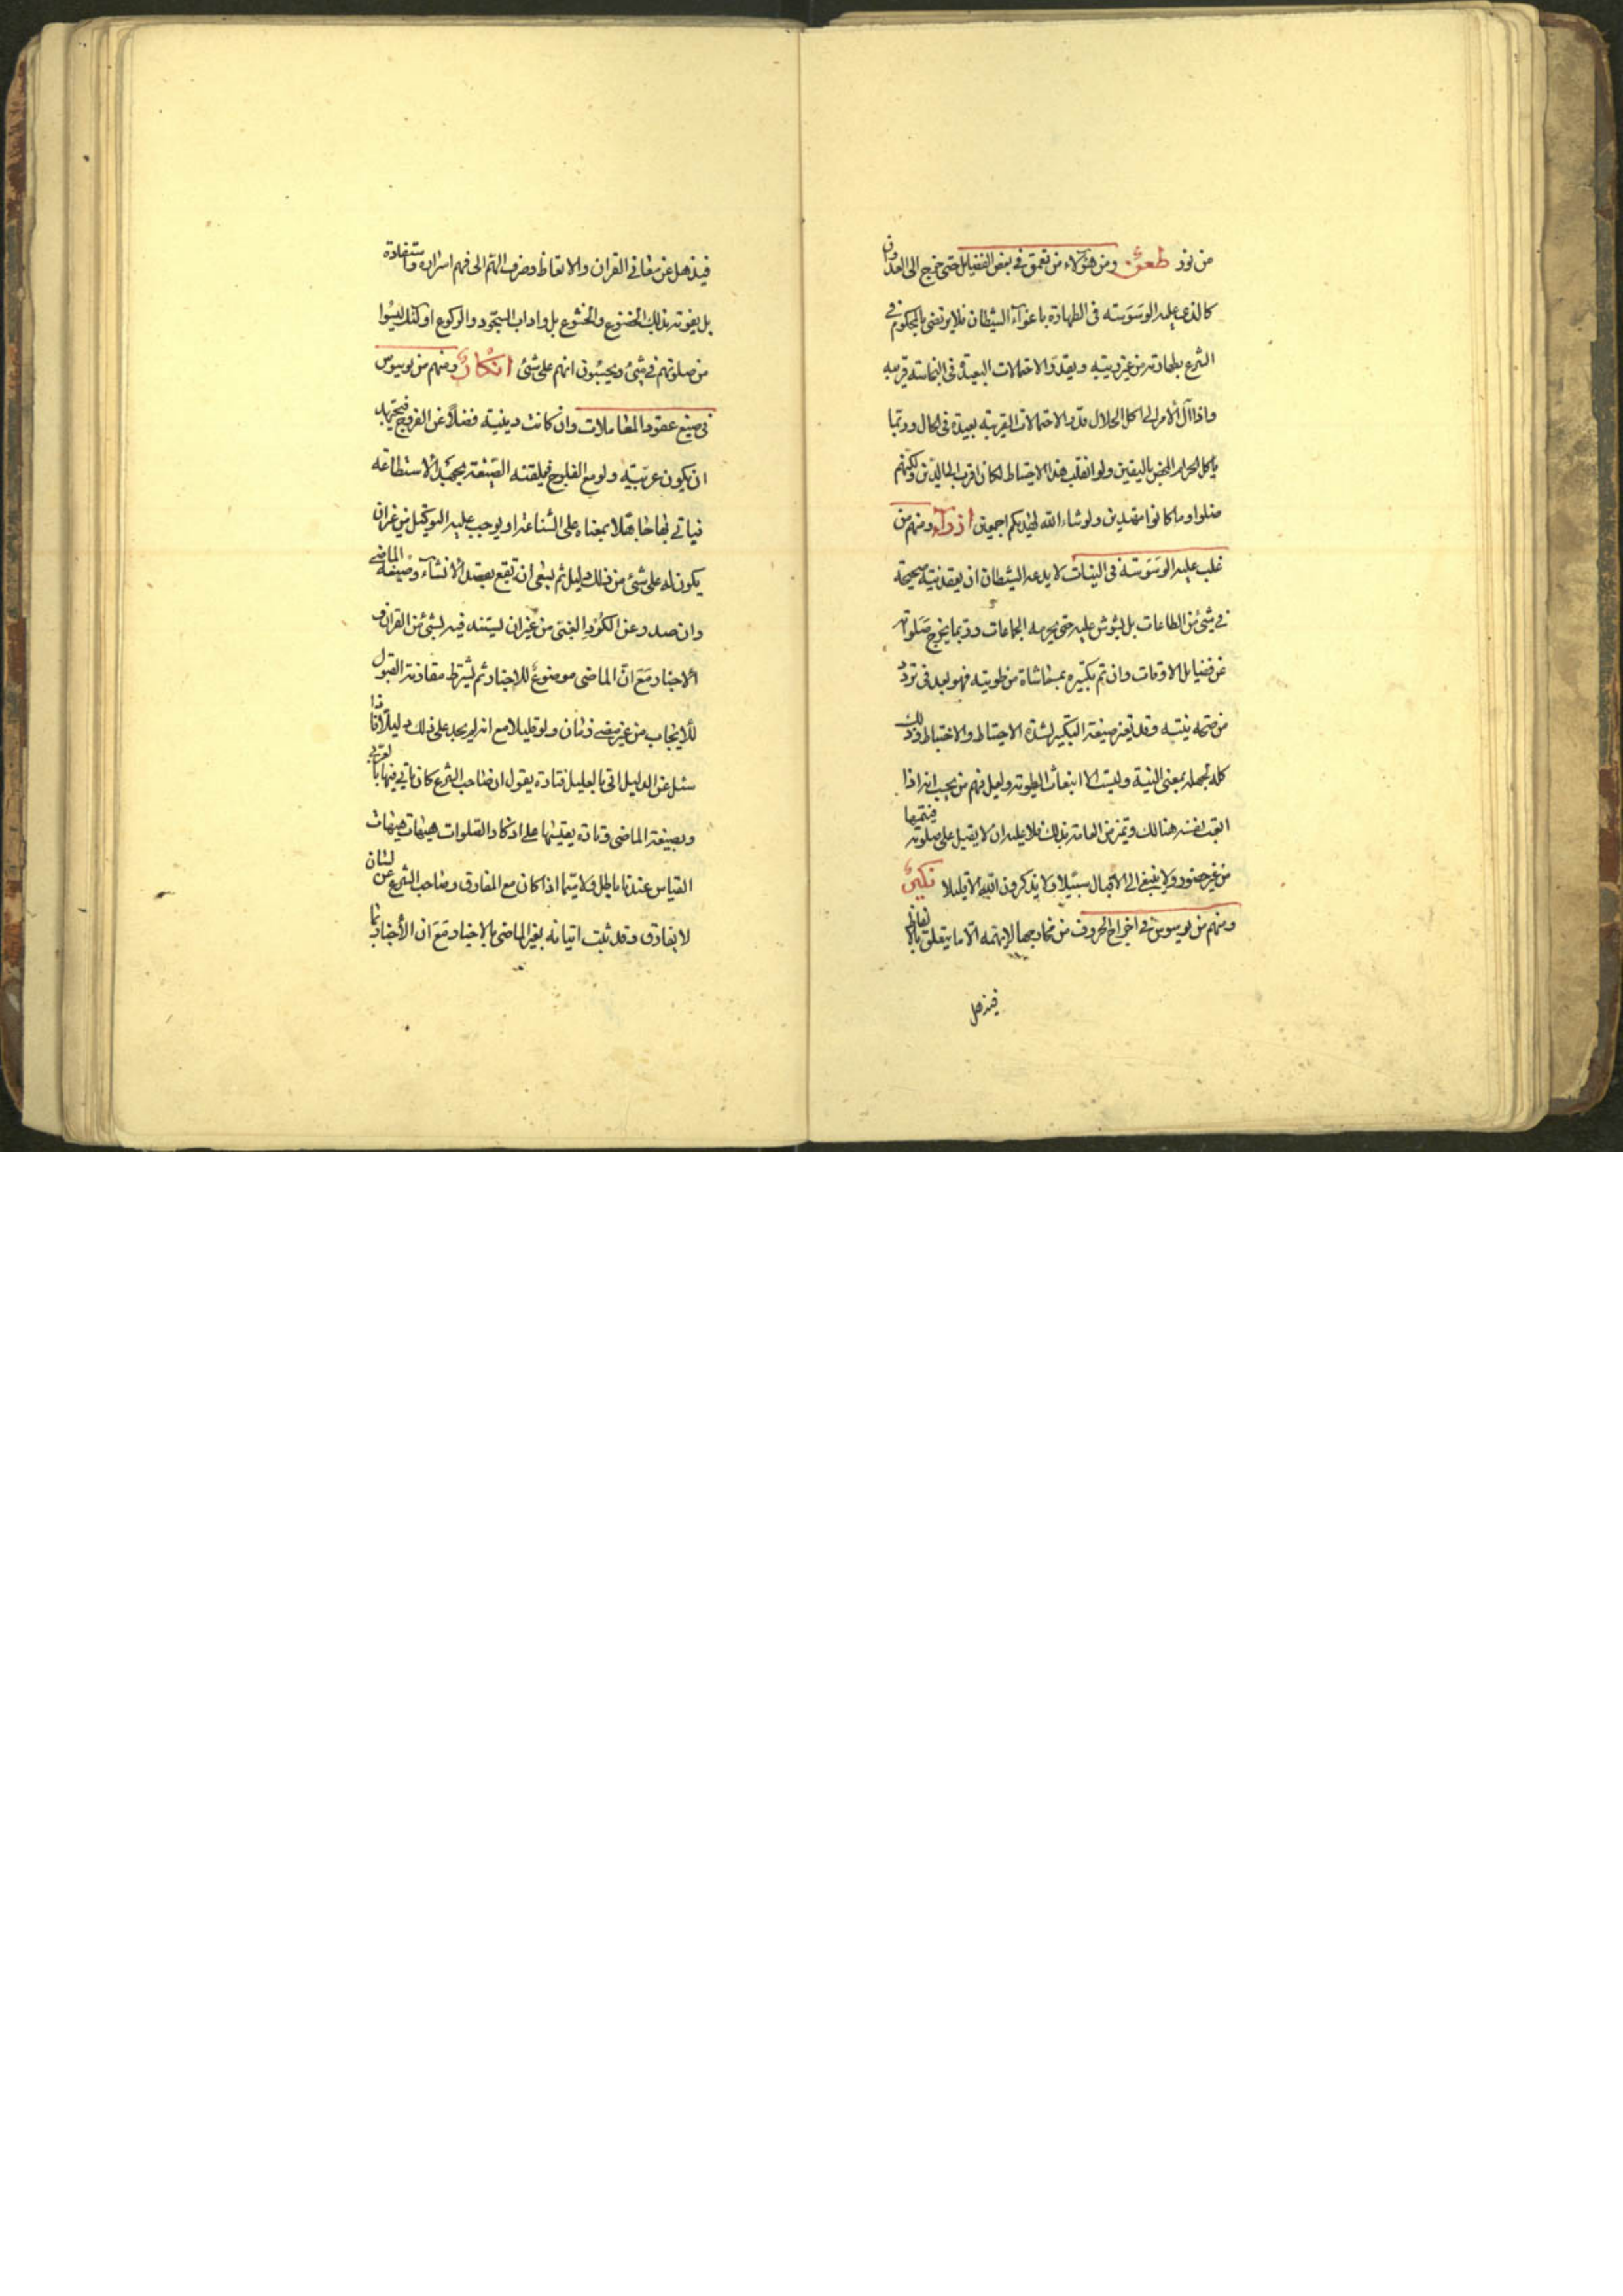 من نور طعن ومن هؤلاء من تعمق في بعض الفضايل حتى خرج الى العدوان
كالذي غلب عليه الوسوسة في الطهارة باغوآء الشيطان فلا يرتضى بالمحكوم في
الشرع بطهارته من غير ريبة ويقدر الاحتمالات البعيدة فى النجاسة قريبة
واذا آل الأمر الى اكل الحلال قدر الاحتمالات القريبة بعيدة فى الحال وربما
ياكل الحرام المحض باليقين ولو انقلب هذا الاحتياط لكان اقرب الى الدين ولكنهم
ضلوا وما كانوا مهتدين ولو شاء الله لهديكم اجمعين ازرآء ومنهم من
غلب عليه الوسوسة فى النيات لا يدعه الشيطان ان يعقد نية صحيحة
في شئ من الطاعات بل يشوش عليه حتى يحرمه الجماعات وربما يخرج صلوته
عن فضايل الاوقات وان تم تكبيره فهو بعد في تردد
من صحة نيته وقد يغير صيغة التكبير لشدة الاحتياط والاختباط وذلك
كله لجهله بمعنى النية وليست الا انبعاث الطوية ولعل فيهم من يحسب انه اذا
اتعب نفسه هنالك وتميز من العامة بذلك فلا عليه ان لا يقبل على صلوته فيتمها
من غير حضور ولا ينبغى الى الاقبال سبيلا ولا يذكرون الله الا قليلا نكير
ومنهم من يوسوس في اخراج الحروف من مخارجها لا يهمه الا ما يتعلق بالالفاظ
فيذهل
فيذهل عن معاني القران والاتعاظ وصرف الهم الى فهم اسراره واستفادة
بل يفوته بذلك الخضوع والخشوع بل واداب السجود والركوع اولئك ليسوا
من صلوتهم في شئ ويحسبون انهم على شئ انكار ومنهم من يوسوس
في صيغ عقود المعاملات وان كانت دينية فضلا عن الفروج فيجتهد
ان يكون عربية ولو مع الفلوج فيلقنه الصيغة بجهد الاستطاعة
فياتي بها جاهلا بمعناه على الشناعة او يوجب عليه التوكيل من غير ان
يكون له على شئ من ذلك دليل ثم يبغى ان تقع بقصد الانشآء وصيغة الماضي
وان صدر عن الكرد الغبى من غير ان يستند فيه لشئ من القران و
الاخبار مع ان الماضى موضوع للاخبار ثم يشترط مقارنة القبول
للايجاب من غير مضي زمان ولو قليلا مع انه لم يجد على ذلك دليلا فاذا
سئل عن الدليل اتى بالعليل فتارة يقول ان صاحب الشرع كان ياتي فيها بالعربي
وبصيغة الماضى وتارة يقيسها على اذكار الصلوات هيهات هيهات
القياس عندنا باطل ولا سيما اذا كان مع الفارق وصاحب الشرع عن لسان
لا يفارق وقد ثبت اتيانه بغير الماضى بالاخبار مع ان الأخبار بما